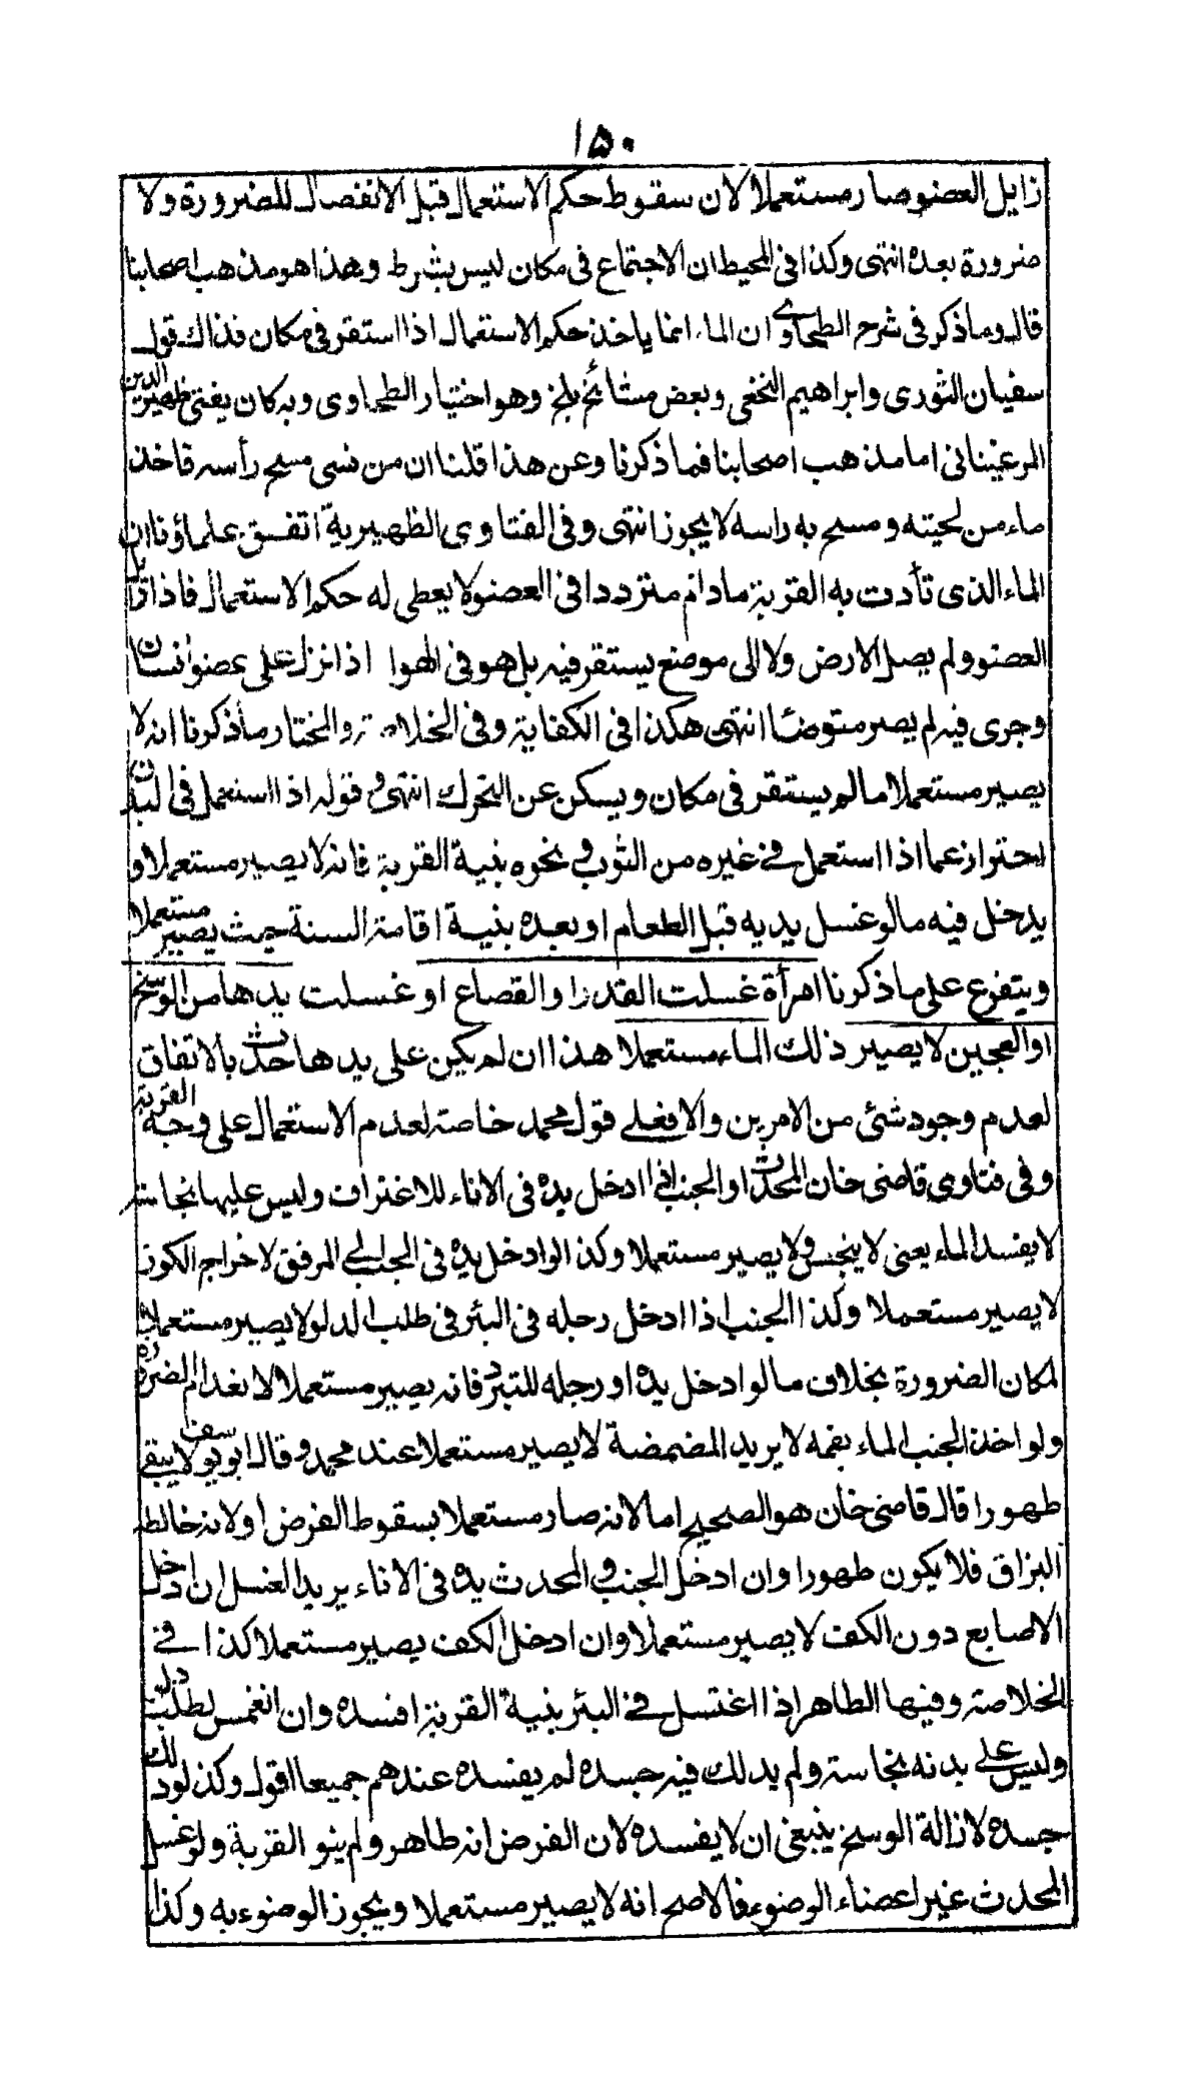 ۱۵۰
زايل العضو صار مستعملا لان سقوط حكم الاستعمال قبل الانفصال للضرورة ولا
ضرورة بعده انتهى وكذا فى المحيط ان الاجتماع فى مكان ليس بشرط وهذا هو مذهب اصحابنا
قال وما ذكر فى شرح الطحاوى ان الماء انما ياخذ حكم الاستعمال اذا استقر فى مكان فذاك قول
سفيان الثورى وابراهيم النخعى وبعض مشائخ بلخ وهو اختيار الطحاوى وبه كان يفتى ظهير الدين
المرغينانى اما مذهب اصحابنا فما ذكرنا وعن هذا قلنا ان من نسى مسح رأسه فاخذ
ماء من لحيته ومسح به راسه لا يجوز انتهى وفى الفتاوى الظهيرية اتفق علماؤنا ان
الماء الذى تأدت به القربة مادام مترددا فى العضو لا يعطى له حكم الاستعمال فاذا زايل
العضو ولم يصل الارض ولا الى موضع يستقر فيه بل هو فى الهوا اذا نزل على عضو انسان
وجرى فيه لم يصير متوضئا انتهى هكذا فى الكفاية وفى الخلاصة والمختار ما ذكرنا انه لا
يصير مستعملا ما لم يستقر فى مكان ويسكن عن التحرك انتهى و قوله اذا استعمل فى البدن
احترازعما اذا استعمل فى غيره من الثوب ونحوه بنية القربة فانه لا يصير مستعملا و
يدخل فيه ما لو غسل يديه قبل الطعام او بعده بنية اقامة السنة حيث يصير مستعملا
ويتفرع على ما ذكرنا امرأة غسلت القدر او القصاع او غسلت يدها من الوسخ
او العجين لا يصير ذلك الماء مستعملا هذا ان لم يكن على يدها حدث بالاتفاق
لعدم وجود شئى من الامرين والا فعلى قول محمد خاصة لعدم الاستعمال على وجه القربة
وفى فتاوى قاضى خان المحدث او الجنب اذا ادخل يده فى الاناء للاغتراف وليس عليها نجاسة
لا يفسد الماء يعنى لا ينجس ولا يصير مستعملا وكذا لو ادخل يده فى الجب الى المرفق لاخراج الكوز
لا يصير مستعملا وكذا الجنب اذا ادخل رجله فى البئر فى طلب الدلو لا يصير مستعملا
لمكان الضرورة بخلاف ما لو ادخل يده او رجله للتبرد فانه يصير مستعملا لانعدام الضرورة
ولو اخذ الجنب الماء بفمه لا يريد المضمضة لا يصير مستعملا عند محمد و قال ابو يوسف لا يبقى
طهورا قال قاضى خان هو الصحيح اما لانه صار مستعملا بسقوط الفرض او لانه خالطه
البزاق فلا يكون طهورا وان ادخل الجنب و المحدث يده فى الاناء يريد الغسل ان ادخل
الاصابع دون الكف لا يصير مستعملا وان ادخل الكف يصير مستعملا كذا فى
الخلاصة وفيها الطاهر اذا اغتسل فى البئر بنية القربة افسده وان انغمس لطلب دلو
وليس على بدنه نجاسة ولم يدلك فيه جسده لم يفسده عندهم جميعا اقول وكذا لو دلك
جسده لازالة الوسخ ينبغى ان لا يفسده لان الفرض انه طاهر ولم ينو القربة ولو غسل
المحدث غير اعضاء الوضوء فالاصح انه لا يصير مستعملا ويجوز الوضوء به وكذا